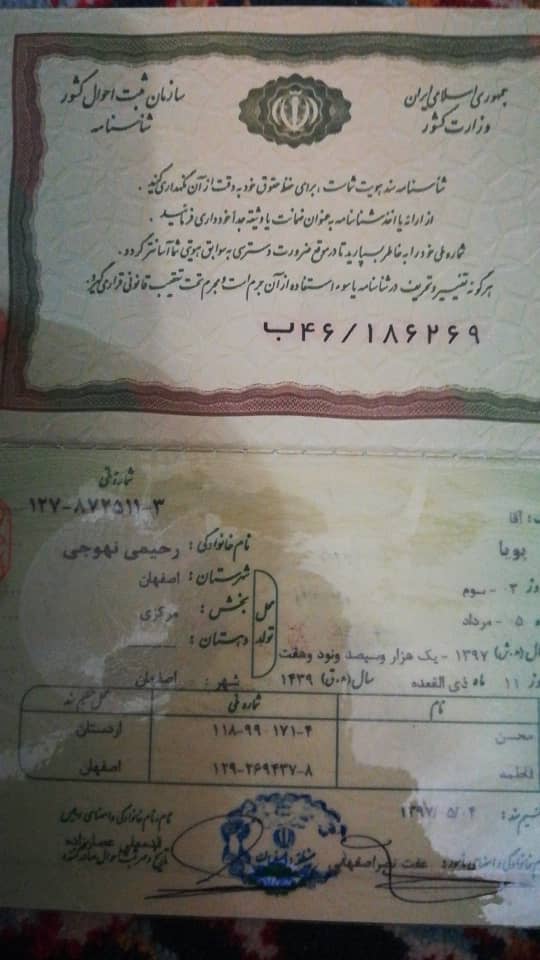 جمهوری اسلامی ایران
وزارت کشور
سازمان ثبت احوال کشور
شناسنامه
شناسنامه سند هویت شماست ، برای حفظ حقوق خود به دقت از آن نگهداری کنید .
از ارائه یا اخذ شناسنامه به عنوان ضمانت یا وثیقه جداً خودداری فرمائید .
شماره ملی خود را به خاطر بسپارید تا در موقع ضرورت دسترسی به سوابق هویتی شما آسانتر گردد .
هرگونه تغییر و تحریف در شناسنامه یا سوء استفاده از آن جرم است و مجرم تحت تعقیب قانونی قرار می گیرد.
ب۴۶/۱۸۶۲۶۹
شماره ملی
۱۲۷-۸۷۲۵۱۱-۳
آقا
پویا
نام خانوادگی : رحیمی نهوجی
روز ۳ - سوم
۵ - مرداد
سال (ه.ش) ۱۳۹۷ - یک هزار و سیصد و نود و هفت
روز ۱۱ ماه ذی القعده سال (ه.ق) ۱۴۳۹
محل تولد
شهرستان : اصفهان
بخش : مرکزی
دهستان :
شهر : اصفهان
نام شماره ملی محل تنظیم سند
محسن ۱۱۸-۹۹۰۱۷۱-۴ اردستان
فاطمه ۱۲۹-۲۶۹۴۳۷-۸ اصفهان
تنظیم سند : ۱۳۹۷/۰۵/۰۴
نام خانوادگی و امضای مامور : عفت نصراصفهانی
نام و نام خانوادگی و امضای رئیس